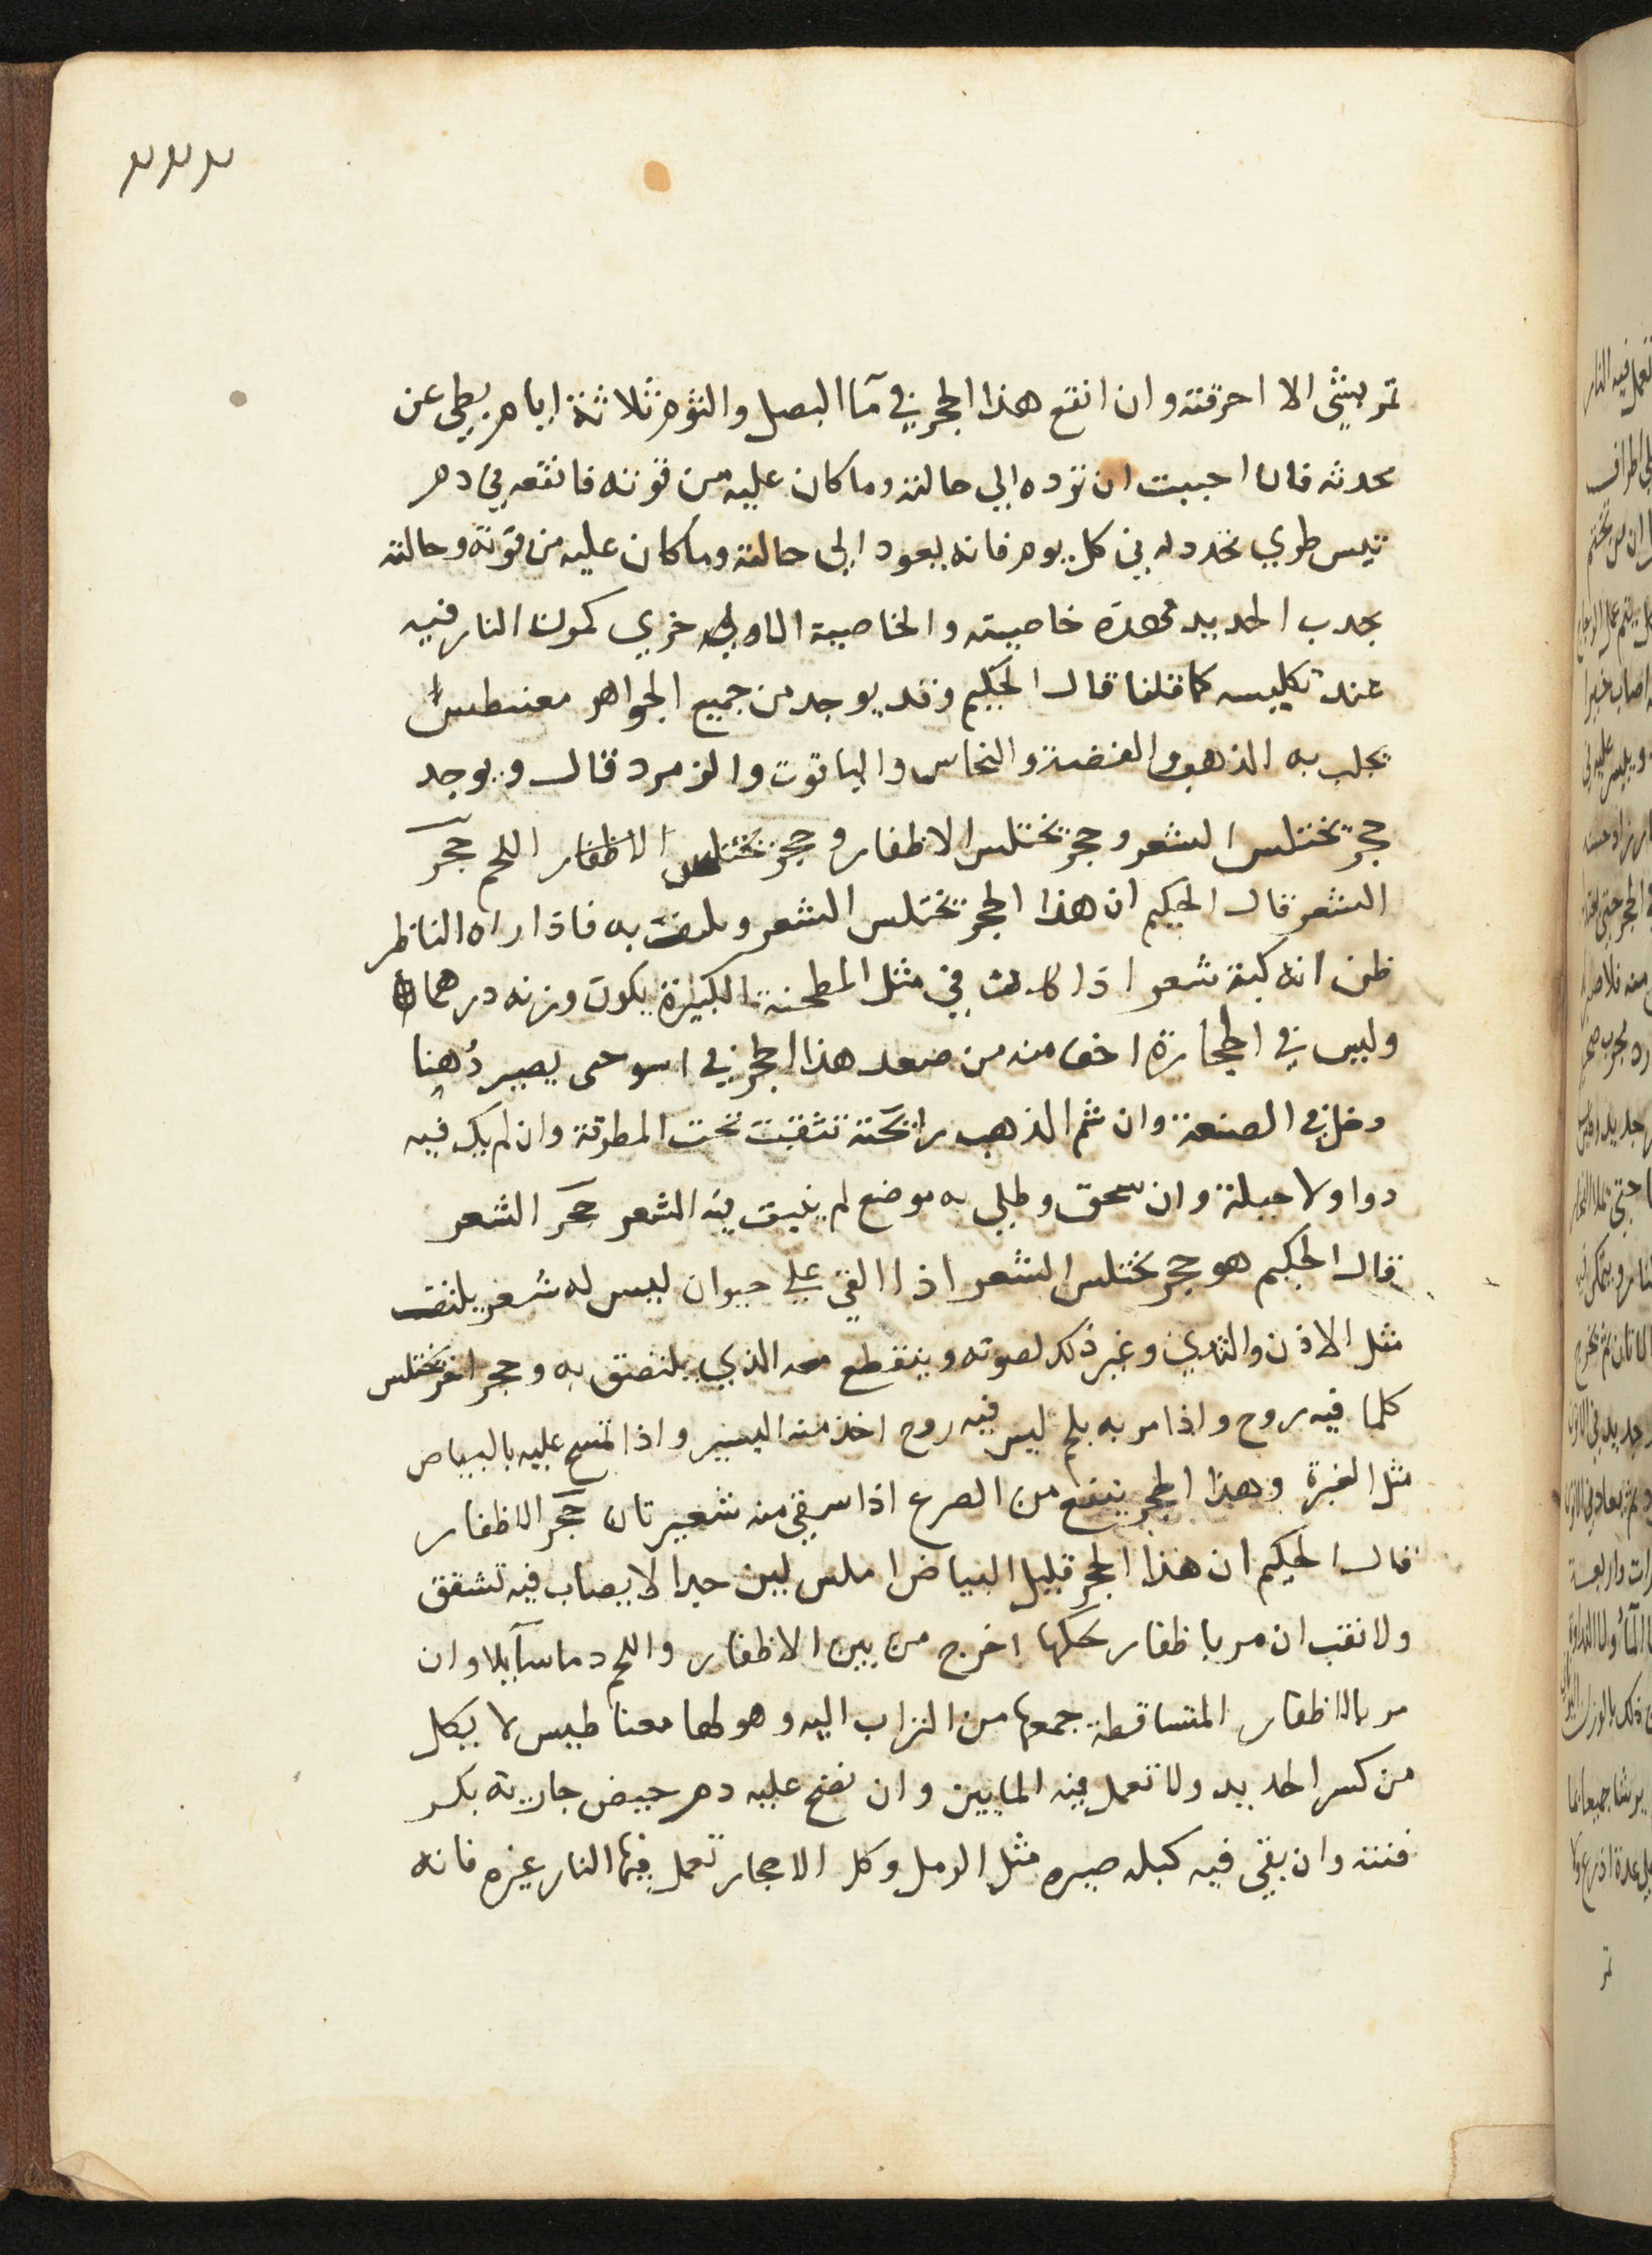 ٢٢٢
تمر بشى الا احرقته وان انقع هذا الحجر في مآ البصل والثوم ثلاثة ايام بطى عن
محدثه فان احببت ان ترده الي حالته وما كان عليه من قوته فانقعه في دم
تيس طري تجدد له في كل يوم فانه يعود الي حالته وما كان عليه من قوته وحالته
بجدب الحديد فهذه خاصيته والخاصية الاولي خري كمون النار فيه
عند تكليسه كما قلنا قال الحكيم وقد يوجد من جميع الجواهر مغنطس
يجلب به الذهب والفضة والنحاس والياقوت والزمرد قال ويوجد
حجر يختلس الشعر وحجر يختلس الاظفار وحجر يختلس الاظفار اللحم حجر
الشعر قال الحكيم ان هذا الحجر يختلس الشعر ويلتف به فاذا راه الناظر
ظن انه كبة شعر اذا كانت في مثل المطحنة الكبيرة يكون وزنه درهمان
وليس في الحجارة اخف منه من صعد هذا الحجر في حى يصير دهنا
دخل في الصنعة وان شم الذهب رائحته تثقبت تحت المطرقة وان لم يك فيه
دوا ولا حيلة وان سحق وطلي به موضع لم ينبت فيه الشعر حجر الشعر
قال الحكيم هو حجر يختلس الشعر اذا القي علي حيوان ليس له شعر يلتف
مثل الاذن والثدي وغير ذلك لصوته وينقطع معه الذي يلتصق به وحجر اخر يختلس
كلما فيه روح واذا مر به بلح ليس فيه روح اخذ منه اليسير واذا تمسح عليه بالبياض
مثل الغبرة وهذا الحجر ينفع من الصرع اذا سقي منه شعيرتان حجر الاظفار
قال الحكيم ان هذا الحجر قليل البياض املس لين جدا لا يصاب فيه تشقق
ولا نقب ان مر باظفار بحكها اخرج من بين الاظفار واللحم دما سآيلا وان
مر بالاظفار المتساقطة جمعها من التراب اليه وهو لها مغناطيس لا يكل
من كسر الحديد ولا تعمل فيه المايين وان نضح عليه دم حيض جارية بكر
فتته وان بقي فيه كبله صيره مثل الرمل وكل الاحجار تعمل فيها النار غيره فانه